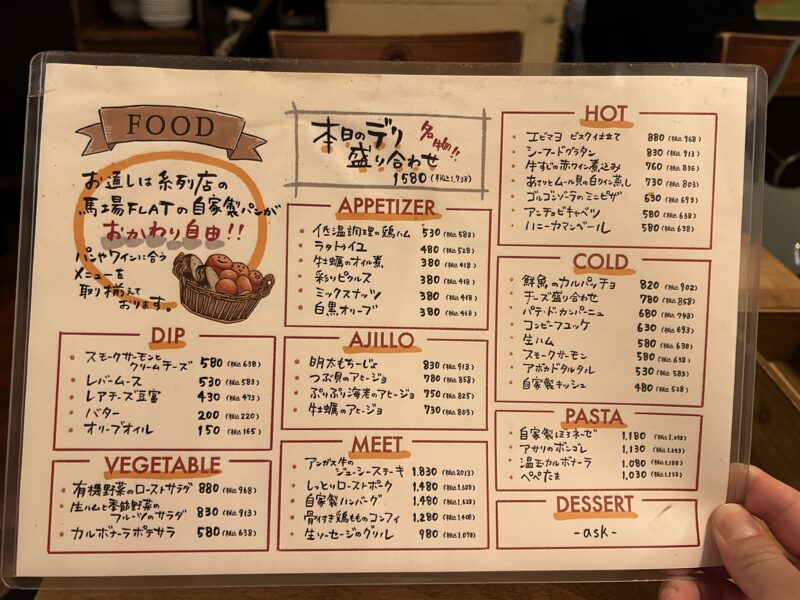 FOOD
お通しは系列店の
馬場FLATの自家製パンが
おかわり自由!!
パンやワインに合う
メニューを
取り揃えて
おります。
DIP
スモークサーモンと
クリームチーズ 580(税込638)
レバームース 530(税込583)
レアチーズ豆富 430(税込473)
バター 200(税込220)
オリーブオイル 150(税込165)
VEGETABLE
有機野菜のローストサラダ 880(税込968)
生ハムと季節野菜の
フルーツのサラダ 830(税込913)
カルボナーラポテサラ 580(税込638)
本日のデリ
盛り合わせ
名物!!
1580(税込1,738)
APPETIZER
低温調理の鶏ハム 530(税込583)
ラタトゥイユ 480(税込528)
牡蠣のオイル煮 380(税込418)
彩りピクルス 380(税込418)
ミックスナッツ 380(税込418)
白黒オリーブ 380(税込418)
AJILLO
明太もちーじょ 830(税込913)
つぶ貝のアヒージョ 780(税込858)
ぷりぷり海老のアヒージョ 750(税込825)
牡蠣のアヒージョ 730(税込803)
MEET
アンガス牛の
ジューシーステーキ 1.830(税込2013)
しっとりローストポーク 1,480(税込1,628)
自家製ハンバーグ 1,480(税込1,628)
骨付き鶏もものコンフィ 1,280(税込1,408)
生ソーセージのグリル 980(税込1,078)
HOT
エビマヨ ビスク仕立て 880(税込968)
シーフードグラタン 830(税込913)
牛すじの赤ワイン煮込み 760(税込836)
あさりとムール貝の白ワイン蒸し 730(税込803)
ゴルゴンゾーラのミニピザ 630(税込693)
アンチョビキャベツ 580(税込638)
ハニーカマンベール 580(税込638)
COLD
鮮魚のカルパッチョ 820(税込902)
チーズ盛り合わせ 780(税込858)
パテ・ド・カンパーニュ 680(税込748)
コンビーフユッケ 630(税込693)
生ハム 580(税込638)
スモークサーモン 580(税込638)
アボカドタルタル 530(税込583)
自家製キッシュ 480(税込528)
PASTA
自家製ぼろネーゼ 1,180(税込1,298)
アサリのボンゴレ 1,130(税込1,243)
温玉カルボナーラ 1,080(税込1,188)
ペペたま 1,030(税込1,133)
DESSERT
-ask-